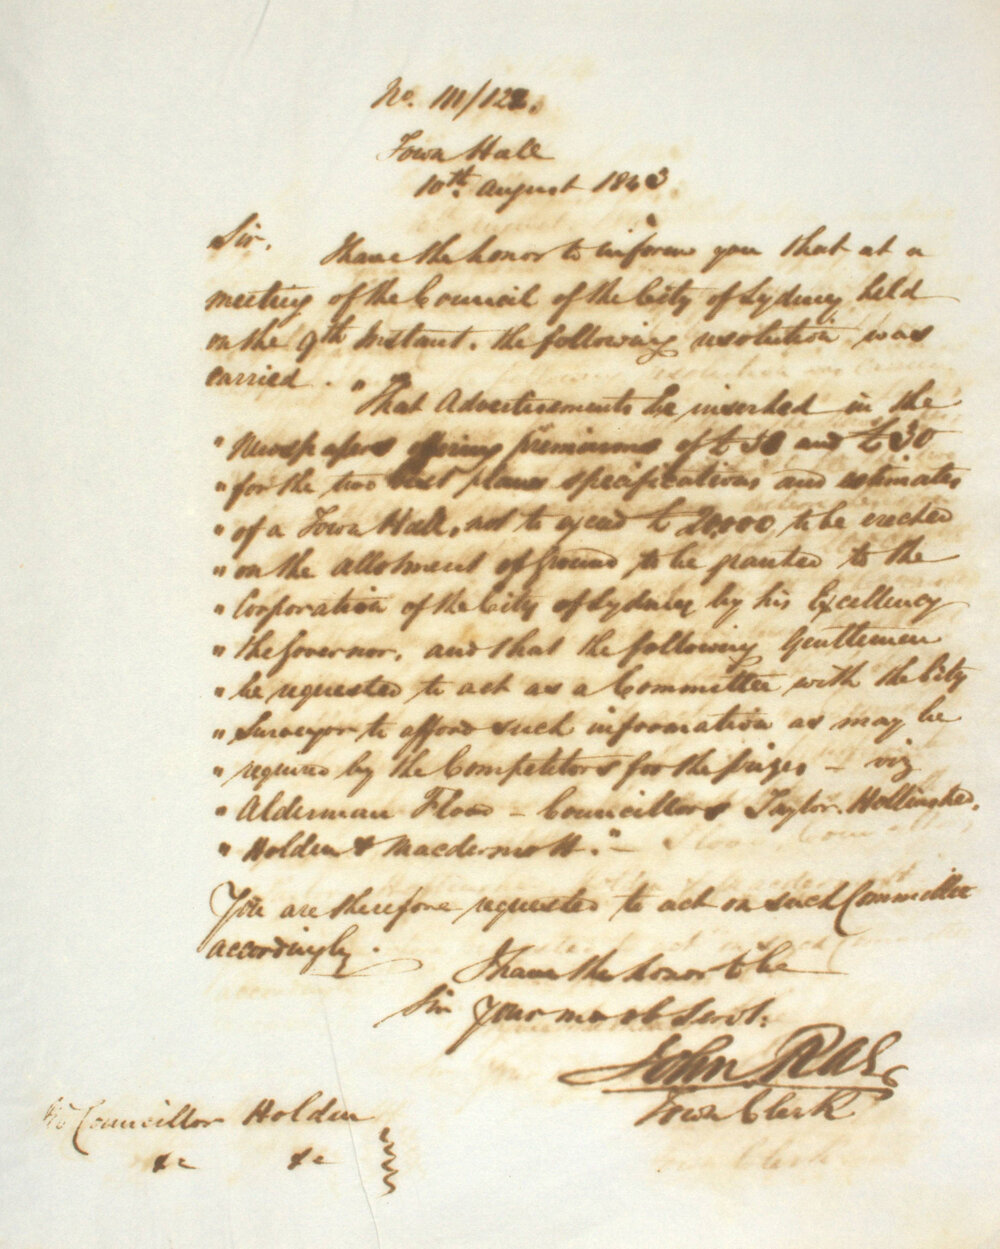 No. 111/122.
Town Hall
10th August 1843.
Sir,
I have the honor to inform you that at a
meeting of the Council of the City of Sydney held
on the 9th Instant. the following resolution was
carried. "That Advertisements be inserted in the
" Newspapers offering premiums of £50 and £30
" for the two best plans specifications and estimates
" of a Town Hall, not to exceed £20,000, to be erected
" on the allotment of ground to be granted to the
" Corporation of the City of Sydney by his Excellency
" the Governor, and that the following Gentlemen
" be requested to act as a Committee with the City
" Surveyor to afford such information as may be
" required by the Competitors for the prizes – viz
" Alderman Flood – Councillors Taylor. Hollinshed.
" Holden & Macdermott." –
You are therefore requested to act on such Committee
accordingly.
I have the honor to be
Sir Your mo ob Servt:
John Rae
Town Clerk
Councillor Holden
&c &c